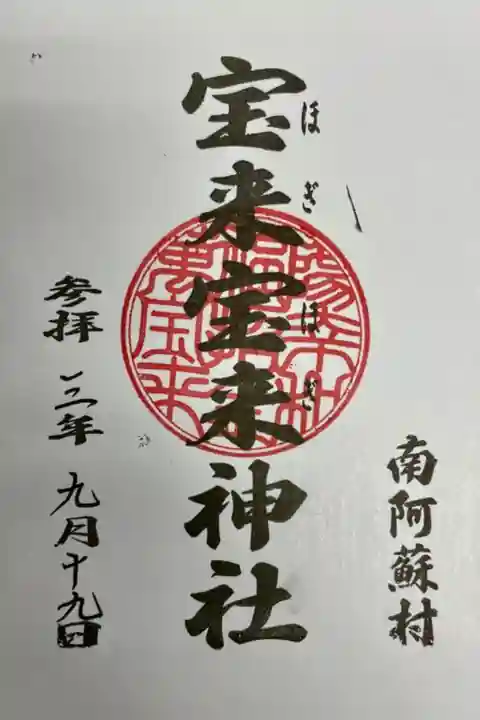 南阿蘇村
宝来宝来神社
ほぎほぎ
参拝 三年 九月十九日